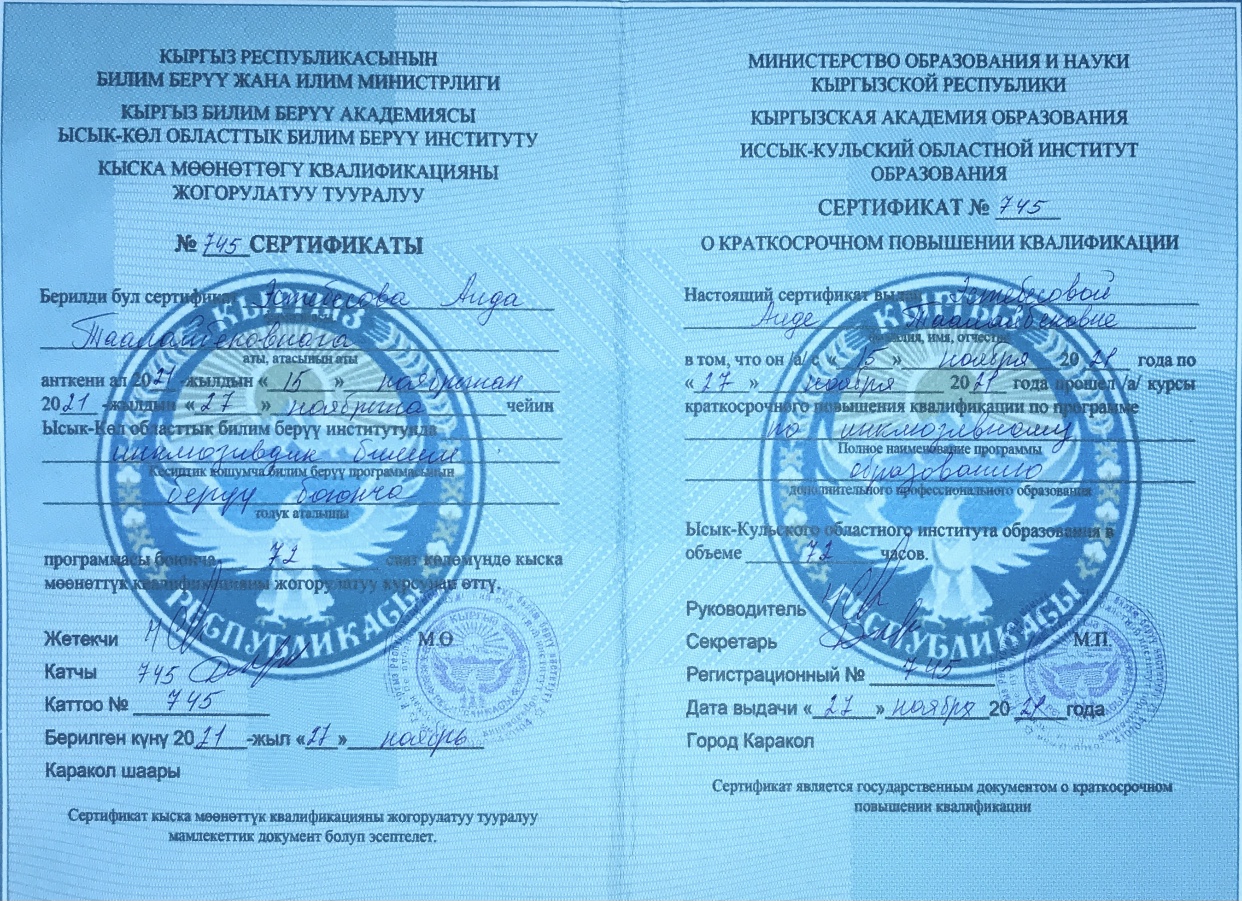 КЫРГЫЗ РЕСПУБЛИКАСЫНЫН
БИЛИМ БЕРҮҮ ЖАНА ИЛИМ МИНИСТРЛИГИ
КЫРГЫЗ БИЛИМ БЕРҮҮ АКАДЕМИЯСЫ
ЫСЫК-КӨЛ ОБЛАСТТЫК БИЛИМ БЕРҮҮ ИНСТИТУТУ
КЫСКА МӨӨНӨТТӨГҮ КВАЛИФИКАЦИЯНЫ
ЖОГОРУЛАТУУ ТУУРАЛУУ
№ 745 СЕРТИФИКАТЫ
Берилди бул сертификат Эстебесова Аида
Таалайбековнага
аты, атасынын аты
анткени ал 2021-жылдын «15» ноябрынан
2021-жылдын «27» ноябрына чейин
Ысык-Көл областтык билим берүү институтунда
инклюзивдик билим
Кесиптик кошумча билим берүү программасынын
берүү боюнча
толук аталышы
программасы боюнча 72 саат көлөмүндө кыска
мөөнөттүк квалификацияны жогорулатуу курсунан өттү.
Жетекчи
М.Ө
Катчы 745
Каттоо № 745
Берилген күнү 2021-жыл «27» ноябрь
Каракол шаары
Сертификат кыска мөөнөттүк квалификацияны жогорулатуу тууралуу
мамлекеттик документ болуп эсептелет.
КЫРГЫЗ
РЕСПУБЛИКАСЫ
МИНИСТЕРСТВО ОБРАЗОВАНИЯ И НАУКИ
КЫРГЫЗСКОЙ РЕСПУБЛИКИ
КЫРГЫЗСКАЯ АКАДЕМИЯ ОБРАЗОВАНИЯ
ИССЫК-КУЛЬСКИЙ ОБЛАСТНОЙ ИНСТИТУТ
ОБРАЗОВАНИЯ
СЕРТИФИКАТ № 745
О КРАТКОСРОЧНОМ ПОВЫШЕНИИ КВАЛИФИКАЦИИ
Настоящий сертификат выдан Эстебесовой
Аиде Таалайбековне
фамилия, имя, отчество
в том, что он /а/ с «15» ноября 2021 года по
«27» ноября 2021 года прошел /а/ курсы
краткосрочного повышения квалификации по программе
по инклюзивному
Полное наименование программы
образованию
дополнительного профессионального образования
Ысык-Кульского областного института образования в
объеме 72 часов.
Руководитель
Секретарь
М.П.
Регистрационный № 745
Дата выдачи «27» ноября 2021 года
Город Каракол
Сертификат является государственным документом о краткосрочном
повышении квалификации
КЫРГЫЗ
РЕСПУБЛИКАСЫ